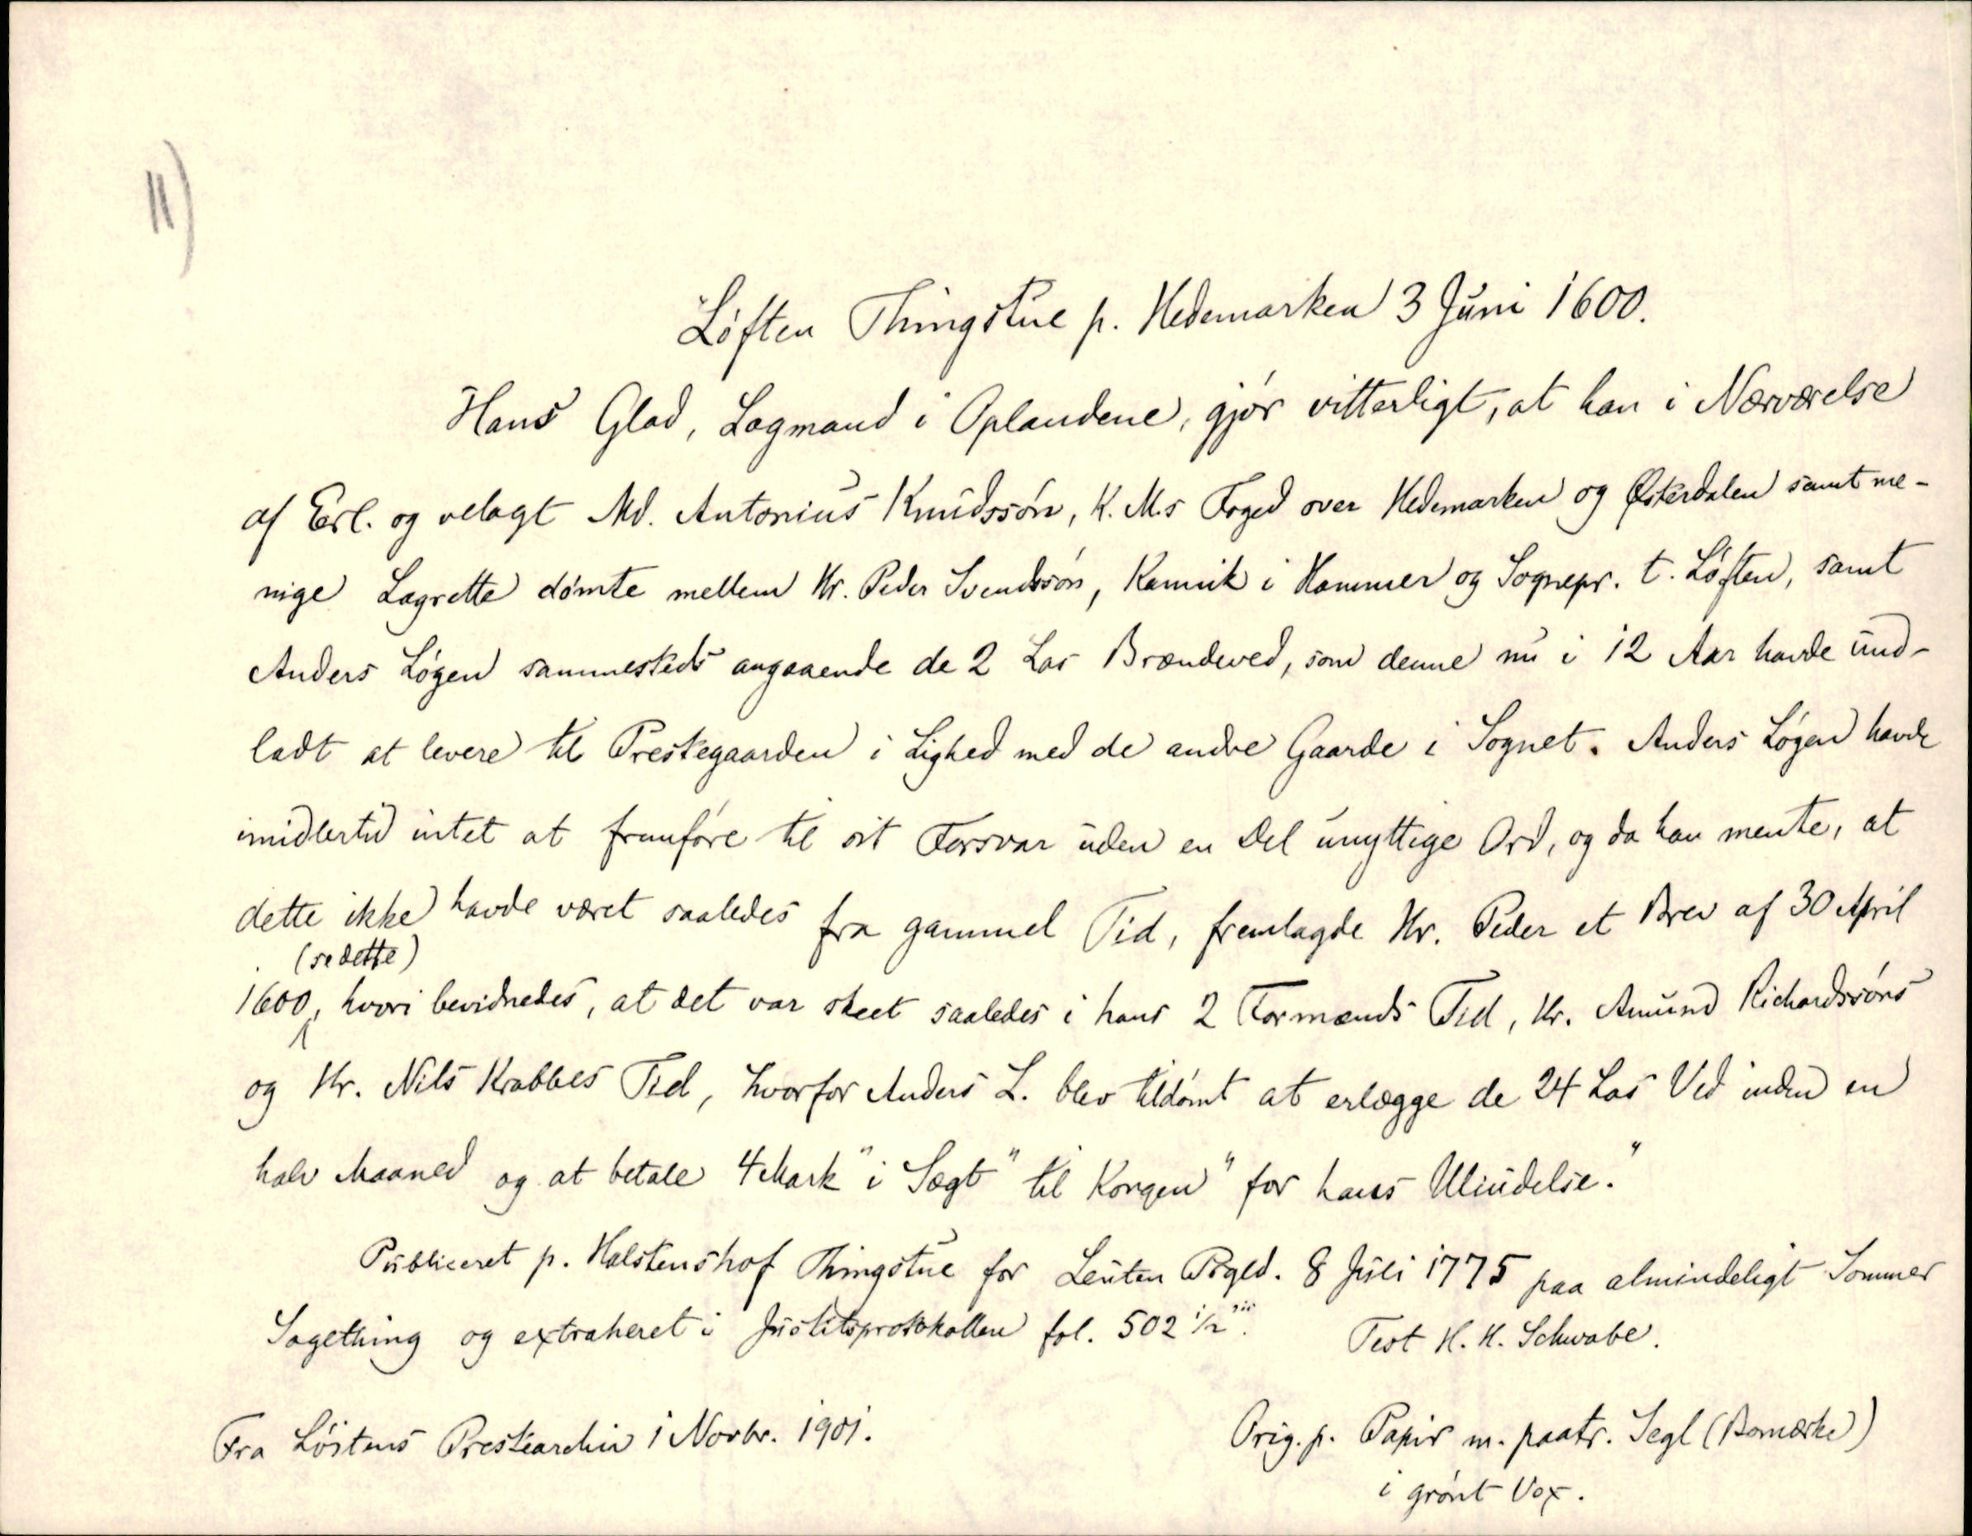 11)
Løften Thingstue p. Hedemarken 3 Juni 1600.
Hans Glad, Lagmand i Oplandene, gjør vitterligt, at han i Nærværelse
af Erl. og velagt Md. Antonius Knudssøn, K. M.s Foged over Hedemarken og Østerdalen samt me-
nige Lagrette dømte mellem Hr. Peder Svendssøn, Kannik i Hammer og Sognepr. t. Løften, samt
Anders Løgen sammesteds angaaende de 2 Las Brændeved, som denne nu i 12 Aar havde und-
ladt at levere til Prestegaarden i Lighed med de andre Gaarde i Sognet. Anders Løgen havde
imidlertid intet at fremføre til sit Forsvar uden en Del unyttige Ord, og da han mente, at
dette ikke havde været saaledes fra gammel Tid, fremlagde Hr. Peder et Brev af 30 April
(se dette)
1600, hvori bevidnedes, at det var skeet saaledes i hans 2 Formænds Tid, Hr. Amund Richardssøns
og Hr. Nils Krabbes Tid, hvorfor Anders L. blev tildømt at erlægge de 24 Las Ved inden en
halv Maaned og at betale 4 Mark "i Sægt" til Kongen "for hans Ulindelse."
Publiceret p. Halstenshof Thingstue for Leuten Prgld. 8 Juli 1775 paa almindeligt Sommer
Sagething og extraheret i Justitsprotokollen fol. 502 1/2". Test H. H. Schwabe.
Fra Løitens Prestearchiv i Novbr. 1901.
Orig. p. Papir m. paatr. Segl (Bomærke)
i grønt Vox.